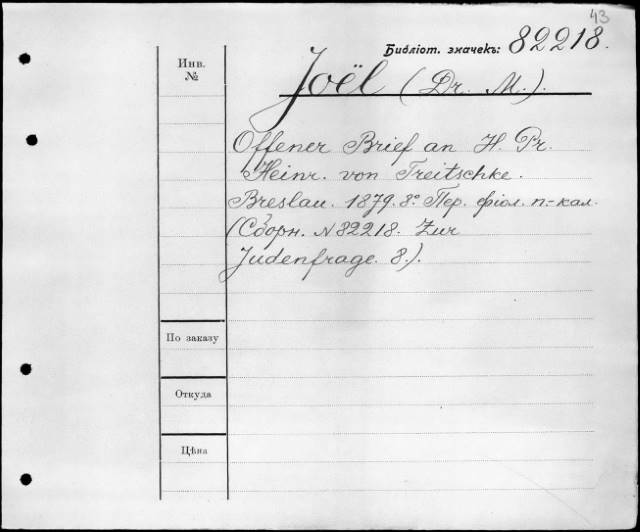 43
Библіот. значекъ: 82218.
Инв.
№
Joël (Dr. M.).
Offener Brief an H. Pr.
Heinr. von Treitschke.
Breslau. 1879. 8° Пер. фіол. п.-кал.
(Сборн. N 82218. Zur
Judenfrage. 8.).
По заказу
Откуда
Цѣна